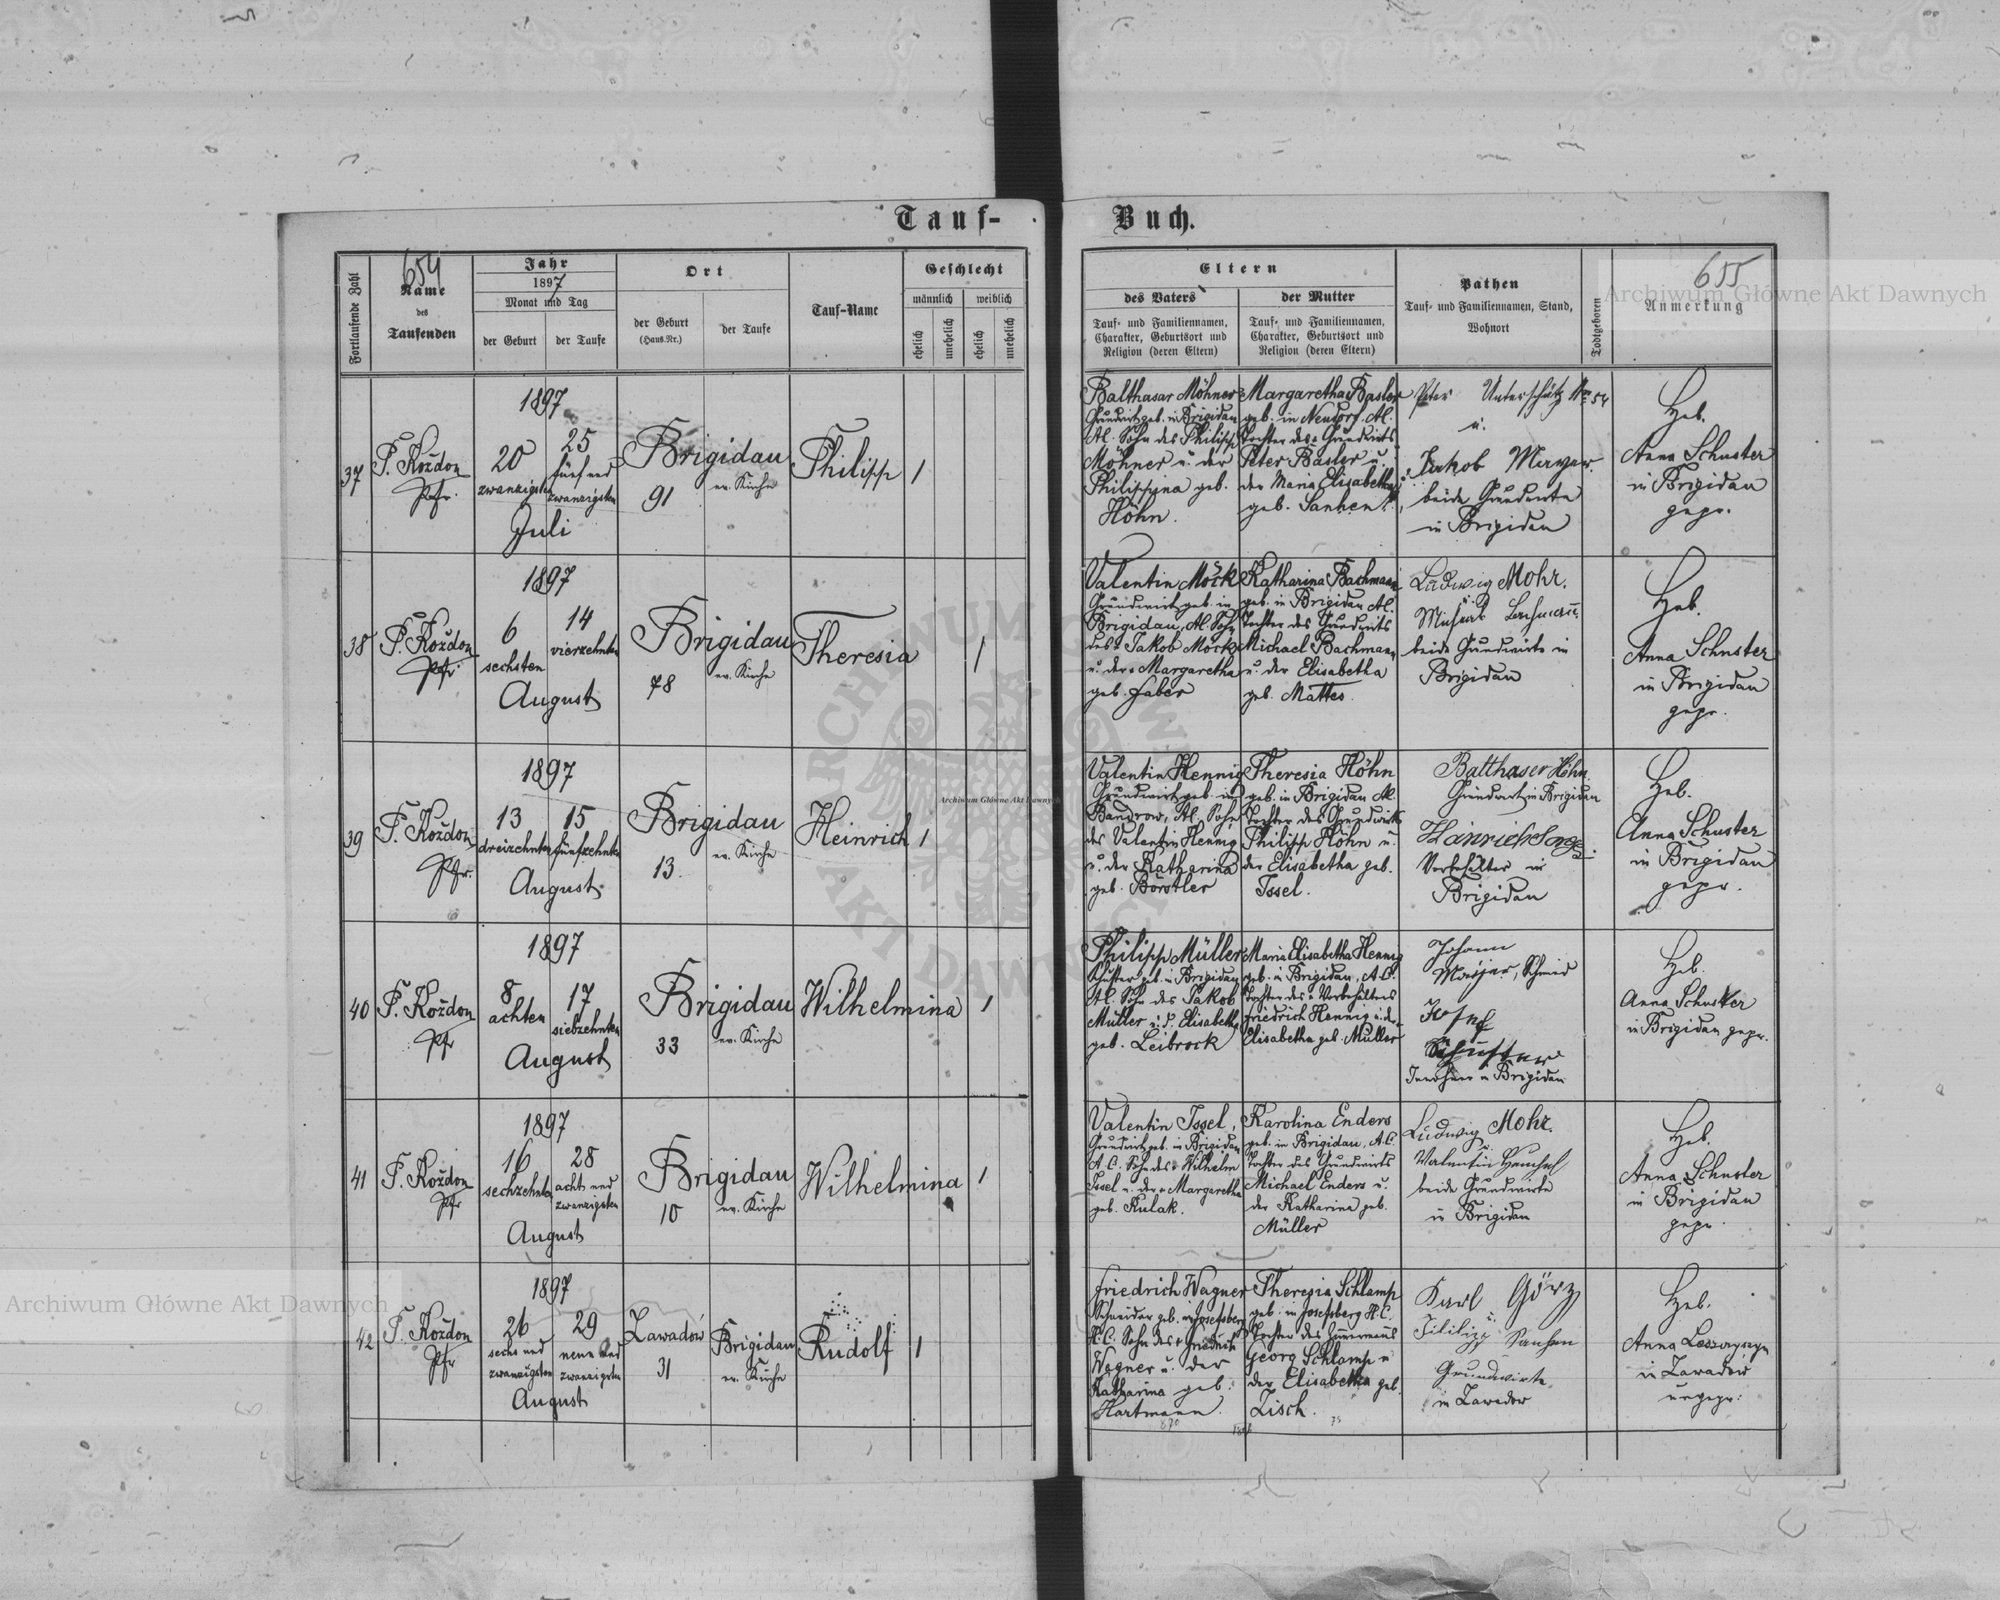 Tauf-
Buch.
654
655
Fortlaufende Zahl
Name
des
Taufenden
Jahr
1897
Monat und Tag
der Geburt
der Taufe
Ort
der Geburt
(Haus-Nr.)
der Taufe
Tauf-Name
Geschlecht
männlich
weiblich
ehelich
unehelich
ehelich
unehelich
Eltern
des Vaters
der Mutter
Tauf- und Familiennamen,
Charakter, Geburtsort und
Religion (deren Eltern)
Tauf- und Familiennamen,
Charakter, Geburtsort und
Religion (deren Eltern)
Pathen
Tauf- und Familiennamen, Stand,
Wohnort
Todtgeboren
Anmerkung
37
F. Koždon
Pfr.
1897
20
zwanzigsten
25
fünf und
zwanzigsten
Juli
Brigidau
91
ev. Kirche
Philipp
1
Balthasar Möhner
Grundwirt geb. in Brigidau
A.C. Sohn des Philipp
Möhner u. der
Philippina geb.
Höhn.
Margaretha Basler
geb. in Neudorf A.C.
Tochter des Grundwirts
Peter Basler u.
der Maria Elisabetha
geb. Sanhen
Peter Unterschütz No 54
u.
Jakob Mayer
beide Grundwirte
in Brigidau
Heb.
Anna Schuster
in Brigidau
gepr.
38
F. Koždon
Pfr
1897
6
sechsten
14
vierzehnten
August
Brigidau
78
ev. Kirche
Theresia
1
Valentin Möck
Grundwirt geb. in
Brigidau, A.C. Sohn
des Jakob Möck
u. der Margaretha
geb. Faber
Katharina Bachmann
geb. in Brigidau A.C.
Tochter des Grundwirts
Michael Bachmann
u. der Elisabetha
geb. Mattes.
Ludwig Mohr.
u.
beide Grundwirte in
Brigidau
Heb.
Anna Schuster
in Brigidau
gepr.
39
F. Koždon
Pfr.
1897
13
dreizehnten
15
fünfzehnten
August
Brigidau
13.
ev. Kirche
Heinrich
1
Valentin Hennig
Grundwirt geb. in
Bandrow, A.C. Sohn
des Valentin Hennig
u. der Katharina
geb. Borstler
Theresia Höhn
geb. in Brigidau A.C.
Tochter des Grundwirts
Philipp Höhn u.
der Elisabetha geb.
Issel.
Balthaser Höhn
Grundwirt in Brigidau
Vorbehälter in
Brigidau
Heb.
Anna Schuster
in Brigidau
gepr.
40
F. Koždon
Pfr
1897
8
achten
17
siebzehnten
August
Brigidau
33
ev. Kirche
Wilhelmina
1
Philipp Müller
Schuster geb. in Brigidau
A.C. Sohn des Jakob
Müller u. d. Elisabetha
geb. Leibrock
Maria Elisabetha Hennig
geb. in Brigidau, A.C.
Tochter des Vorbehälters
Friedrich Hennig u. der
Elisabetha geb. Müller
Johann
Schmied
Josef
Schuster
Inwohner in Brigidau
Heb.
Anna Schuster
in Brigidau gepr.
41
F. Koždon
Pfr
1897
16
sechzehnten
28
acht und
zwanzigsten
August
Brigidau
10
ev. Kirche
Wilhelmina
1
Valentin Issel,
Grundwirt geb. in Brigidau
A.C. Sohn des Wilhelm
Issel u. der Margaretha
geb. Kulak.
Karolina Enders
geb. in Brigidau, A.C.
Tochter des Grundwirts
Michael Enders u.
der Katharina geb.
Müller
Ludwig Mohr.
u.
Valentin
beide Grundwirte
in Brigidau
Heb.
Anna Schuster
in Brigidau
gepr.
42
F. Koždon
Pfr
1897
26
sechs und
zwanzigsten
29
neun und
zwanzigsten
August
Zawadów
31
Brigidau
ev. Kirche
Rudolf
1
Friedrich Wagner
Schneider geb. in Josefsberg
H.C. Sohn des Friedrich
Wagner u. der
Katharina geb.
Hartmann.
Theresia Schlamp
geb. in Josefsberg H.C.
Tochter des Zimermans
Georg Schlamp u
der Elisabetha geb.
Zisch.
Karl Görz
u.
Grundwirte
in Zawadow
Heb.
Anna
in Zawadów
ungepr.
Archiwum Główne Akt Dawnych
Archiwum Główne Akt Dawnych
Archiwum Główne Akt Dawnych
ARCHIWUM GŁÓWNE AKT DAWNYCH